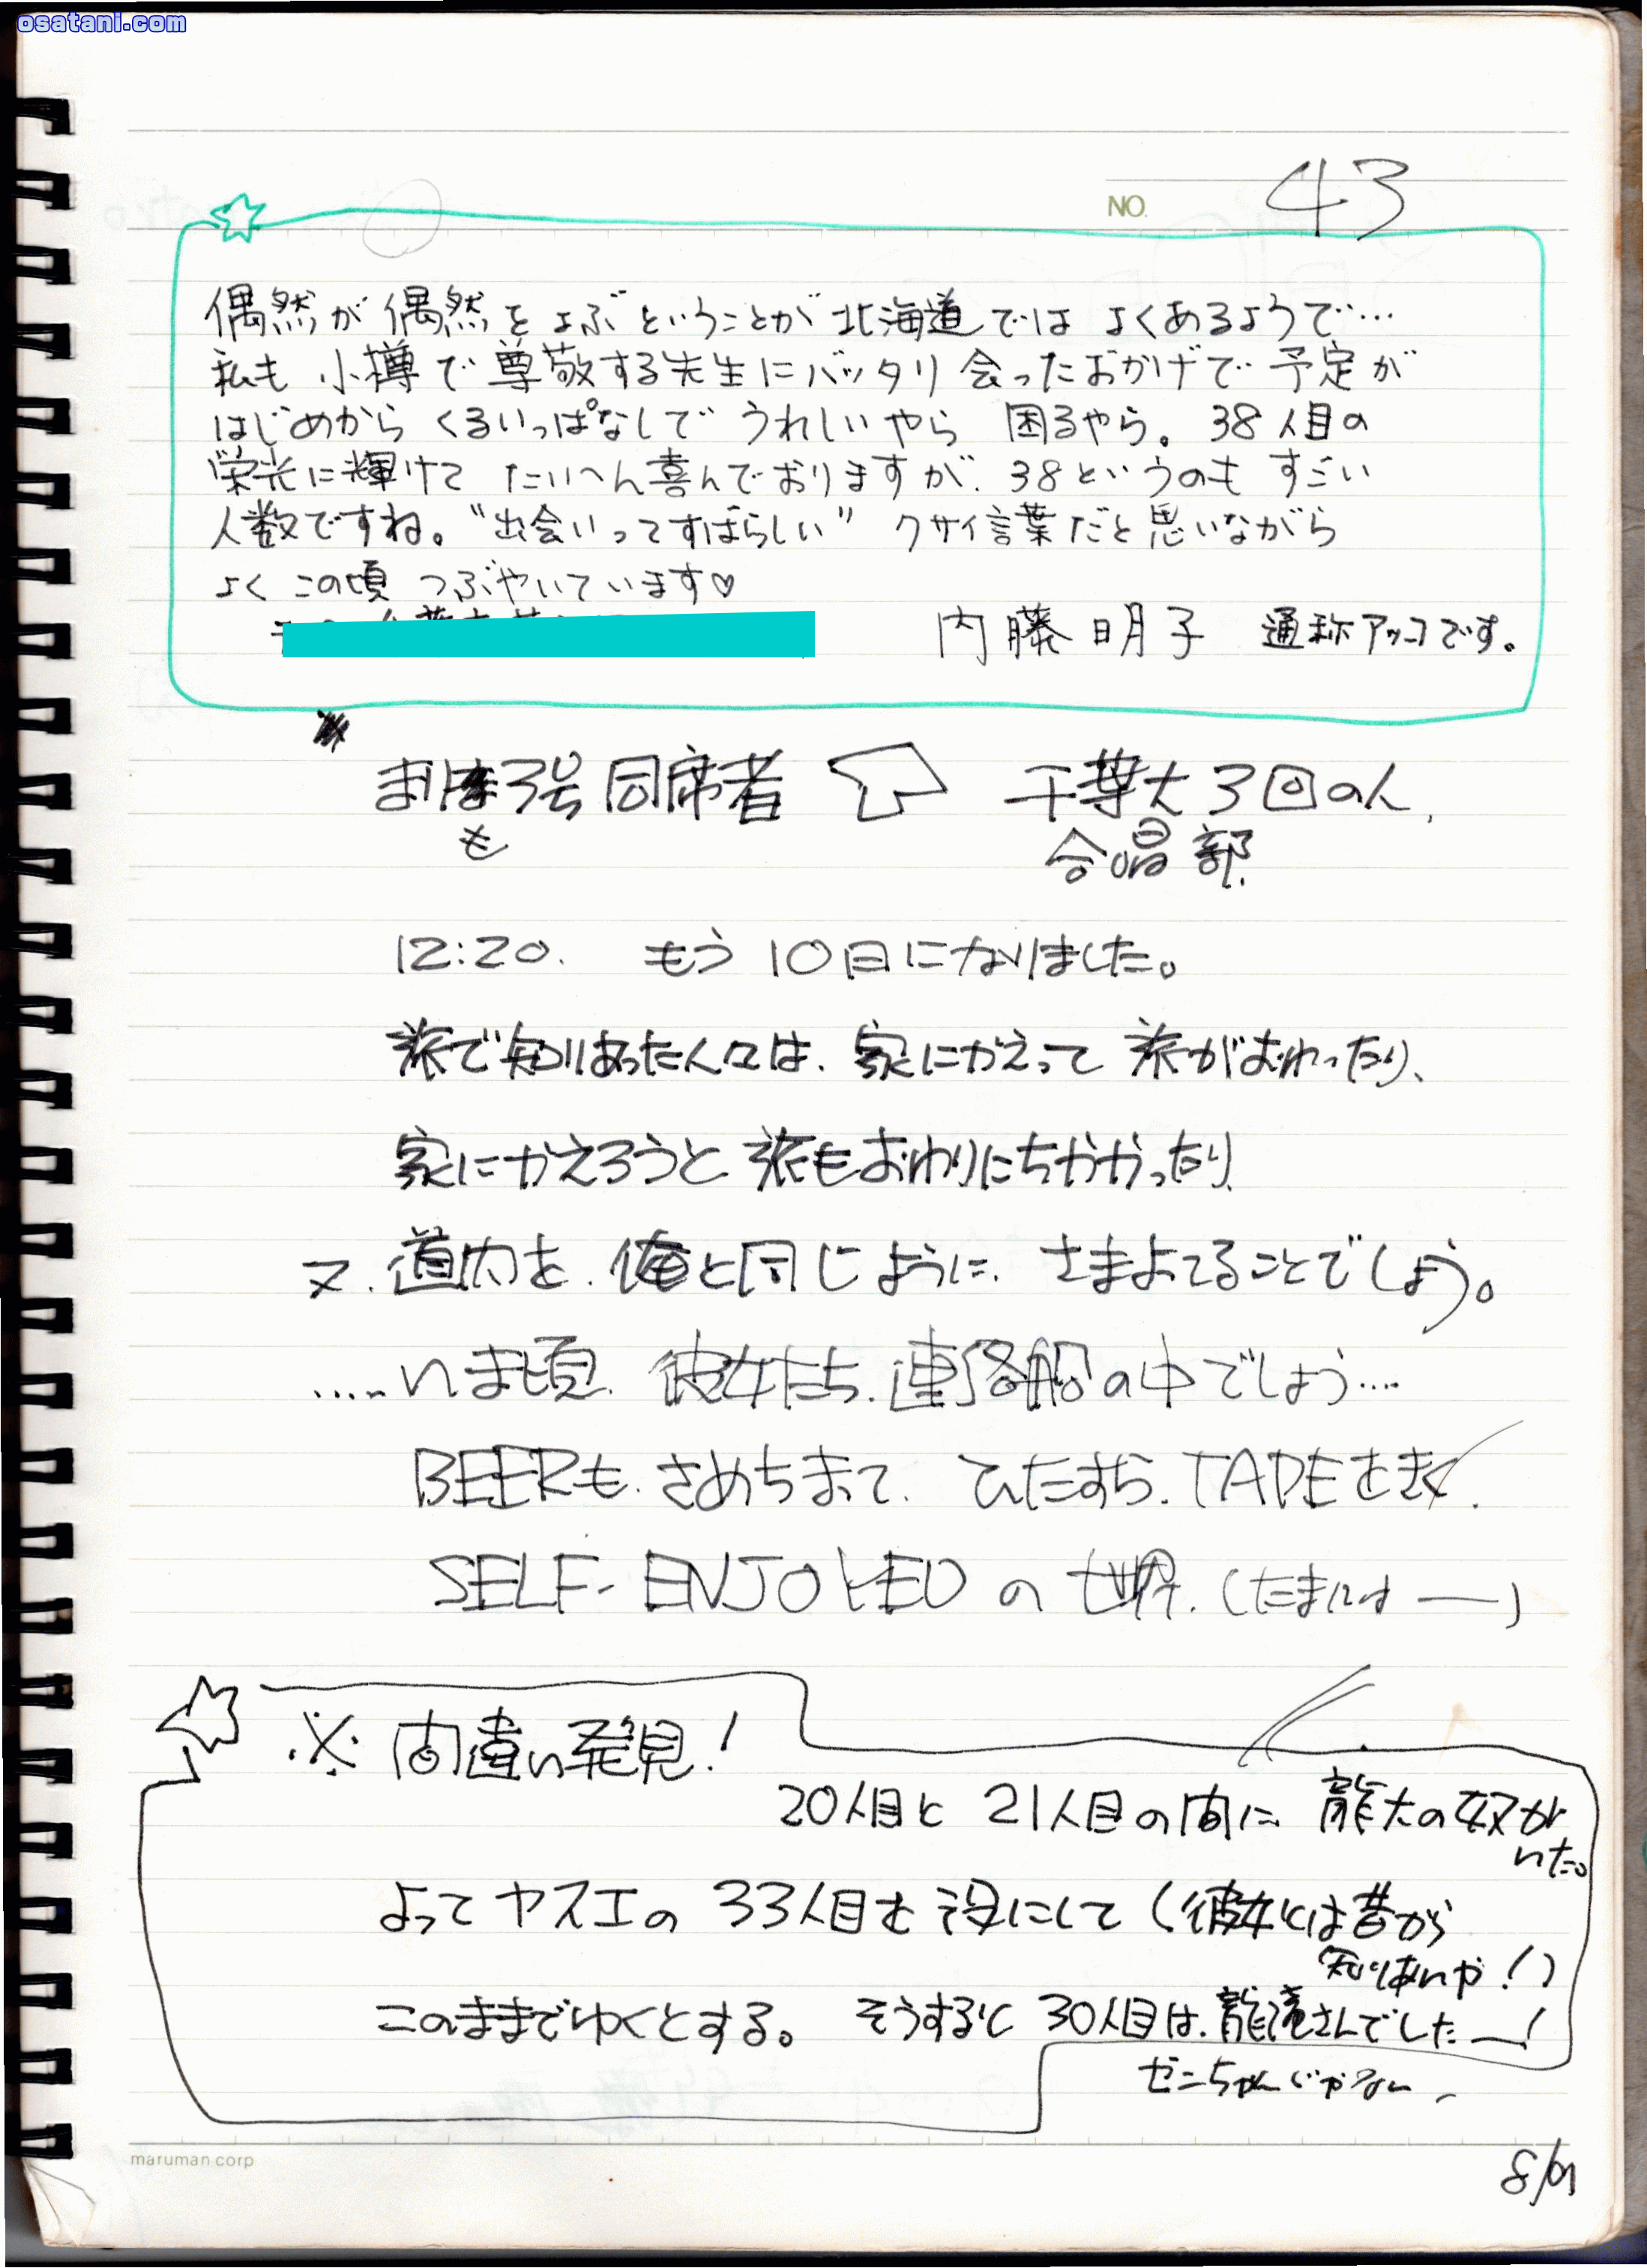 osatani.com
NO. 43
偶然が偶然をよぶということが北海道では よくあるようで…
私も 小樽で 尊敬する先生にバッタリ 会ったおかげで 予定が
はじめから くるいっぱなしで うれしいやら 困るやら。38人目の
栄光に輝けて たいへん喜んでおりますが、38というのも すごい
人数ですね。“出会いってすばらしい” クサイ言葉だと思いながら
よく この頃 つぶやいています♡
内藤明子 通称アッコです。
3号同席者 千葉大3回の人、
も 合唱部.
12:20. もう 10日になりました。
旅で知りあった人々は、家にかえって 旅がおわったり、
家にかえろうと 旅もおわりにちかかったり、
又、道内を、俺と同じように、さまよってることでしょう。
.....いま頃、彼女たち、連絡船の中でしょう....
BEERも、さめちまって、ひたすら、TAPEをきく.
SELF-ENJOYEDの世界.(たまにはー)
※ 間違い発見!
20人目と 21人目の間に 龍大の奴が
いた。
よってヤスエの 33人目を没にして(彼女とは昔から
知りあいや!)
このままでゆくとする。 そうすると 30人目は、龍滝さんでしたー!
ゼニちゃんじゃない
maruman corp
8/9